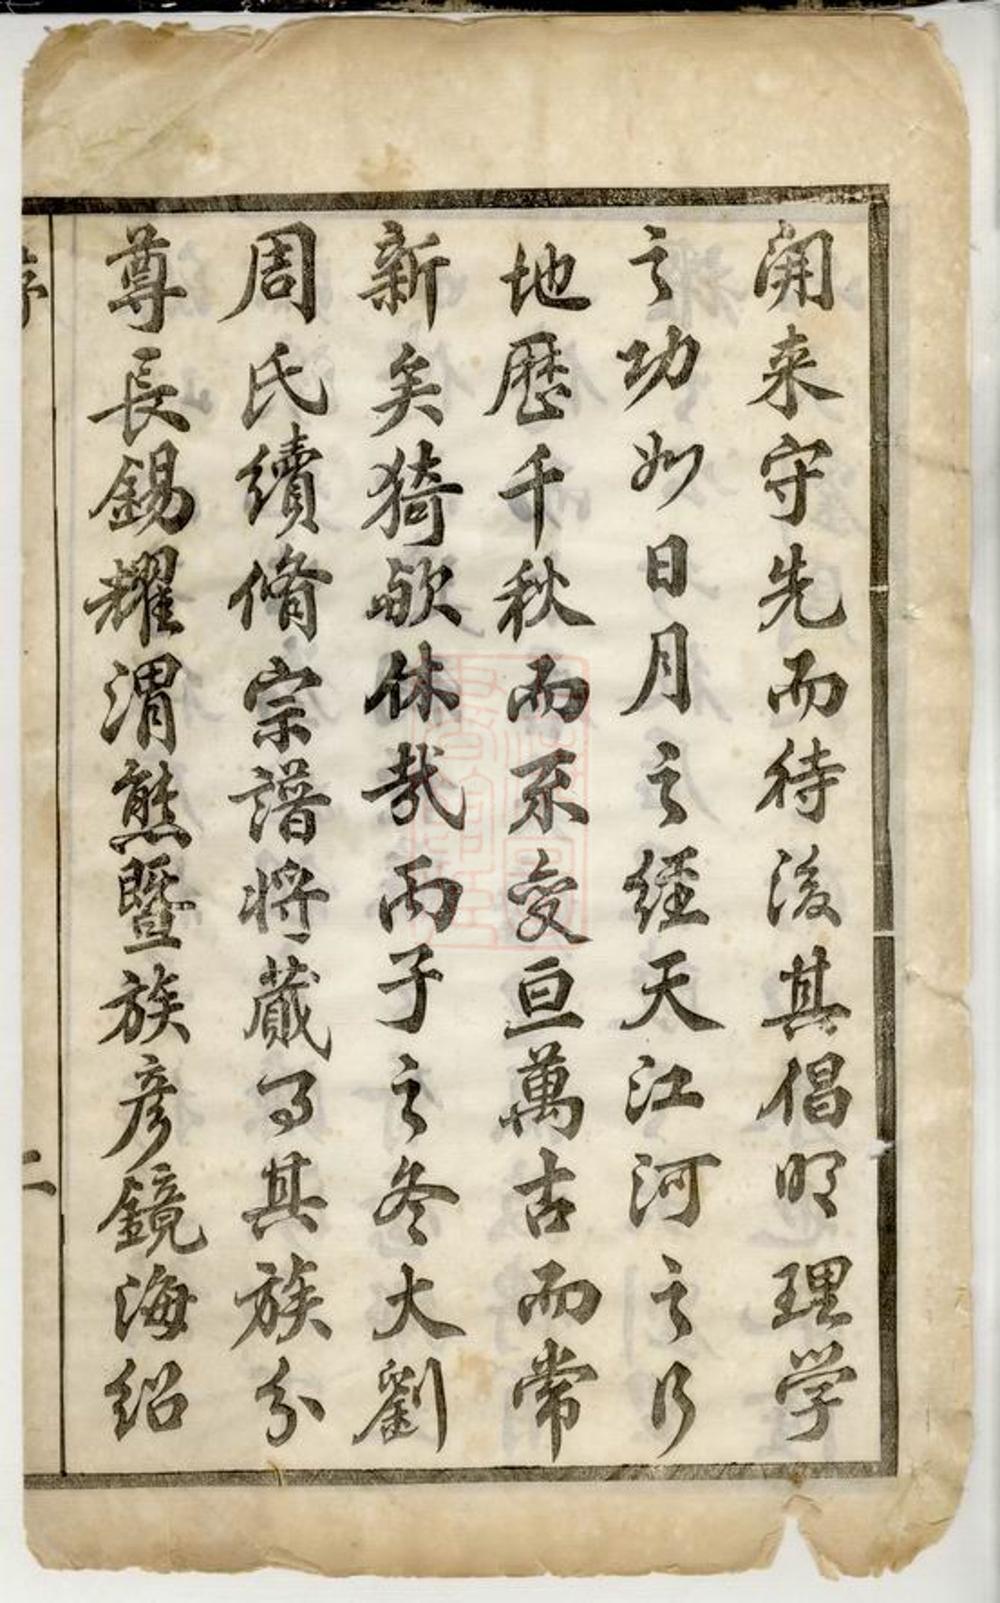 開来守先而待後其倡明理学
之功如日月之經天江河之行
地歷千秋而不变亘萬古而常
新矣猗歟休哉丙子之冬大劉
周氏續脩宗譜将蕆事其族分
尊長錫耀渭熊暨族彦鏡海紹
二